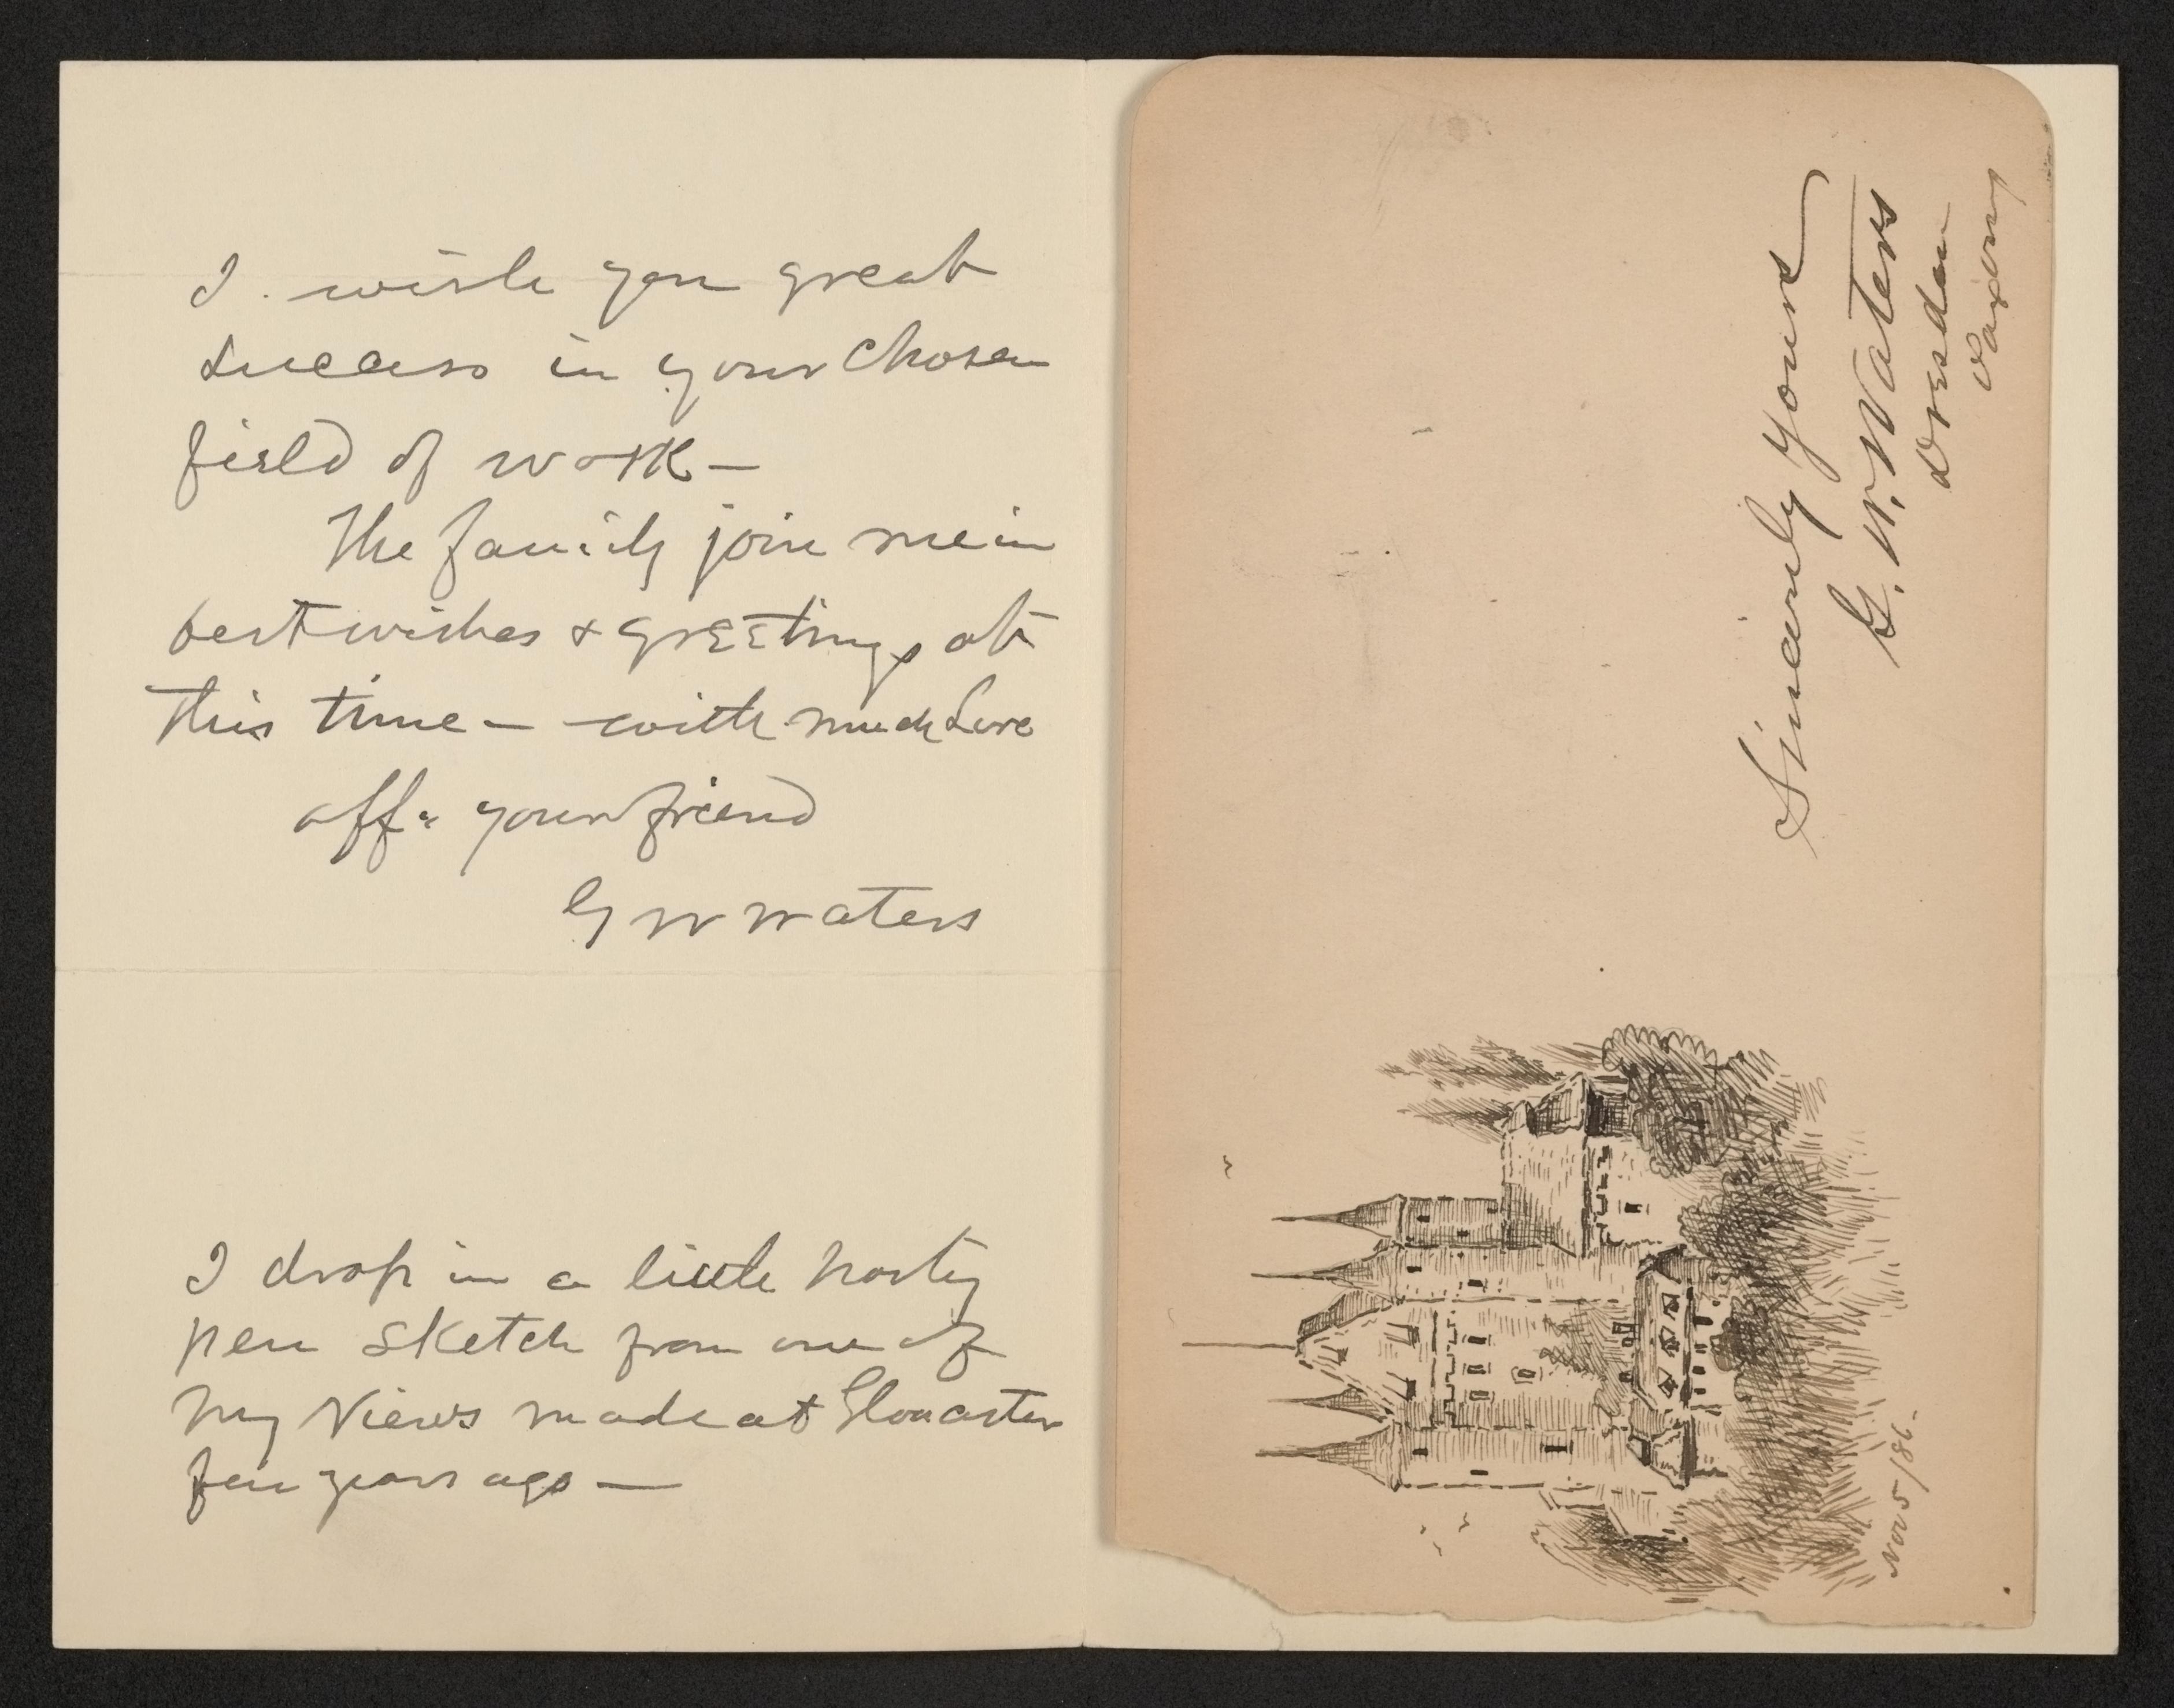 I wish you great
success in your chosen
field of work —
The family join me in
best wishes & greetings at
this time — with much Love
aff. your friend
G W Waters
I drop in a little hasty
pen sketch from one of
my views made at Gloucester
few years ago —
Sincerely yours
G. W. Waters
Dresden
Saxony
Nov 5/86 -